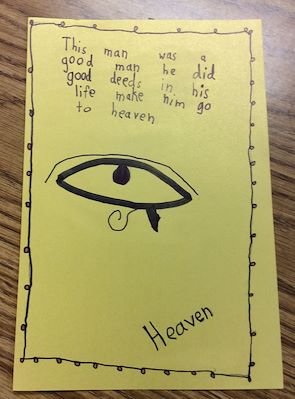 This man was a
good man he did
good deeds in his
life make him go
to heaven
Heaven